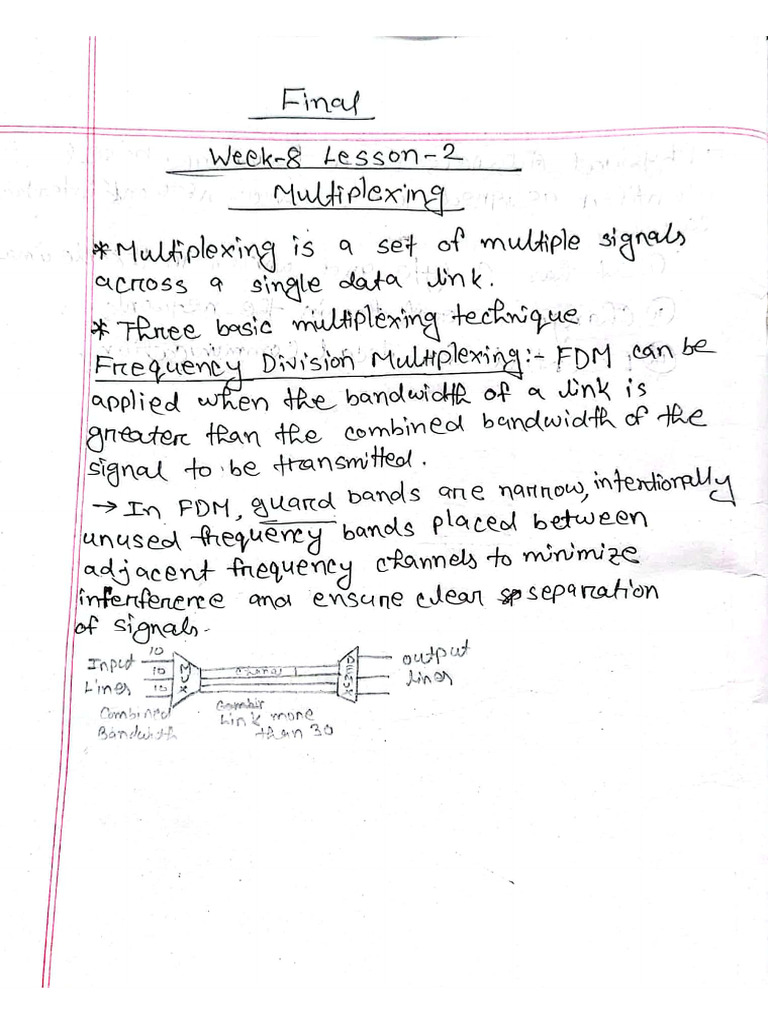 Final
Week-8 Lesson-2
Multiplexing
* Multiplexing is a set of multiple signals
across a single data link.
* Three basic multiplexing technique
Frequency Division Multiplexing:- FDM can be
applied when the bandwidth of a link is
greater than the combined bandwidth of the
signal to be transmitted.
→ In FDM, guard bands are narrow, intentionally
unused frequency bands placed between
adjacent frequency channels to minimize
interference and ensure clear separation
of signals.
Input 10 10 10 MUX DMUX output
Lines lines
Combined Bandwidth
Link more
than 30